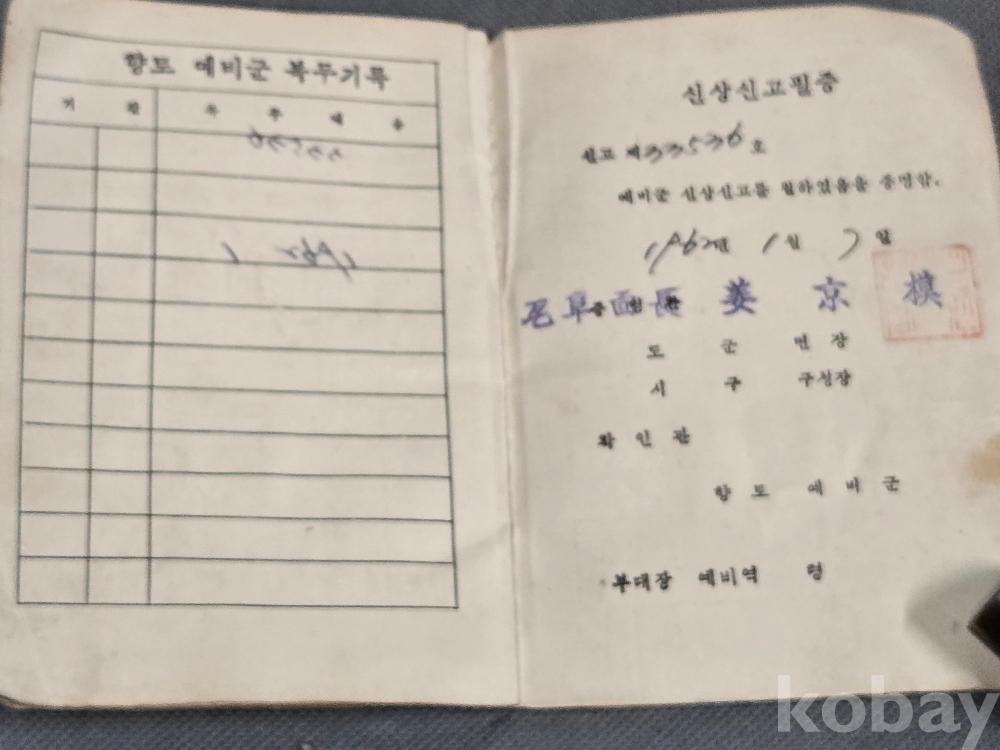 향토 예비군 복무기록
기 간 복 무 내 용
신상신고필증
신고 제33536호
예비군 신상신고를 필하였음을 증명함.
196 년 1월 7일
面長 姜 京 模
도 군 면장
시 구 구청장
확인관
향토 예비군
부대장 예비역 령
kobay